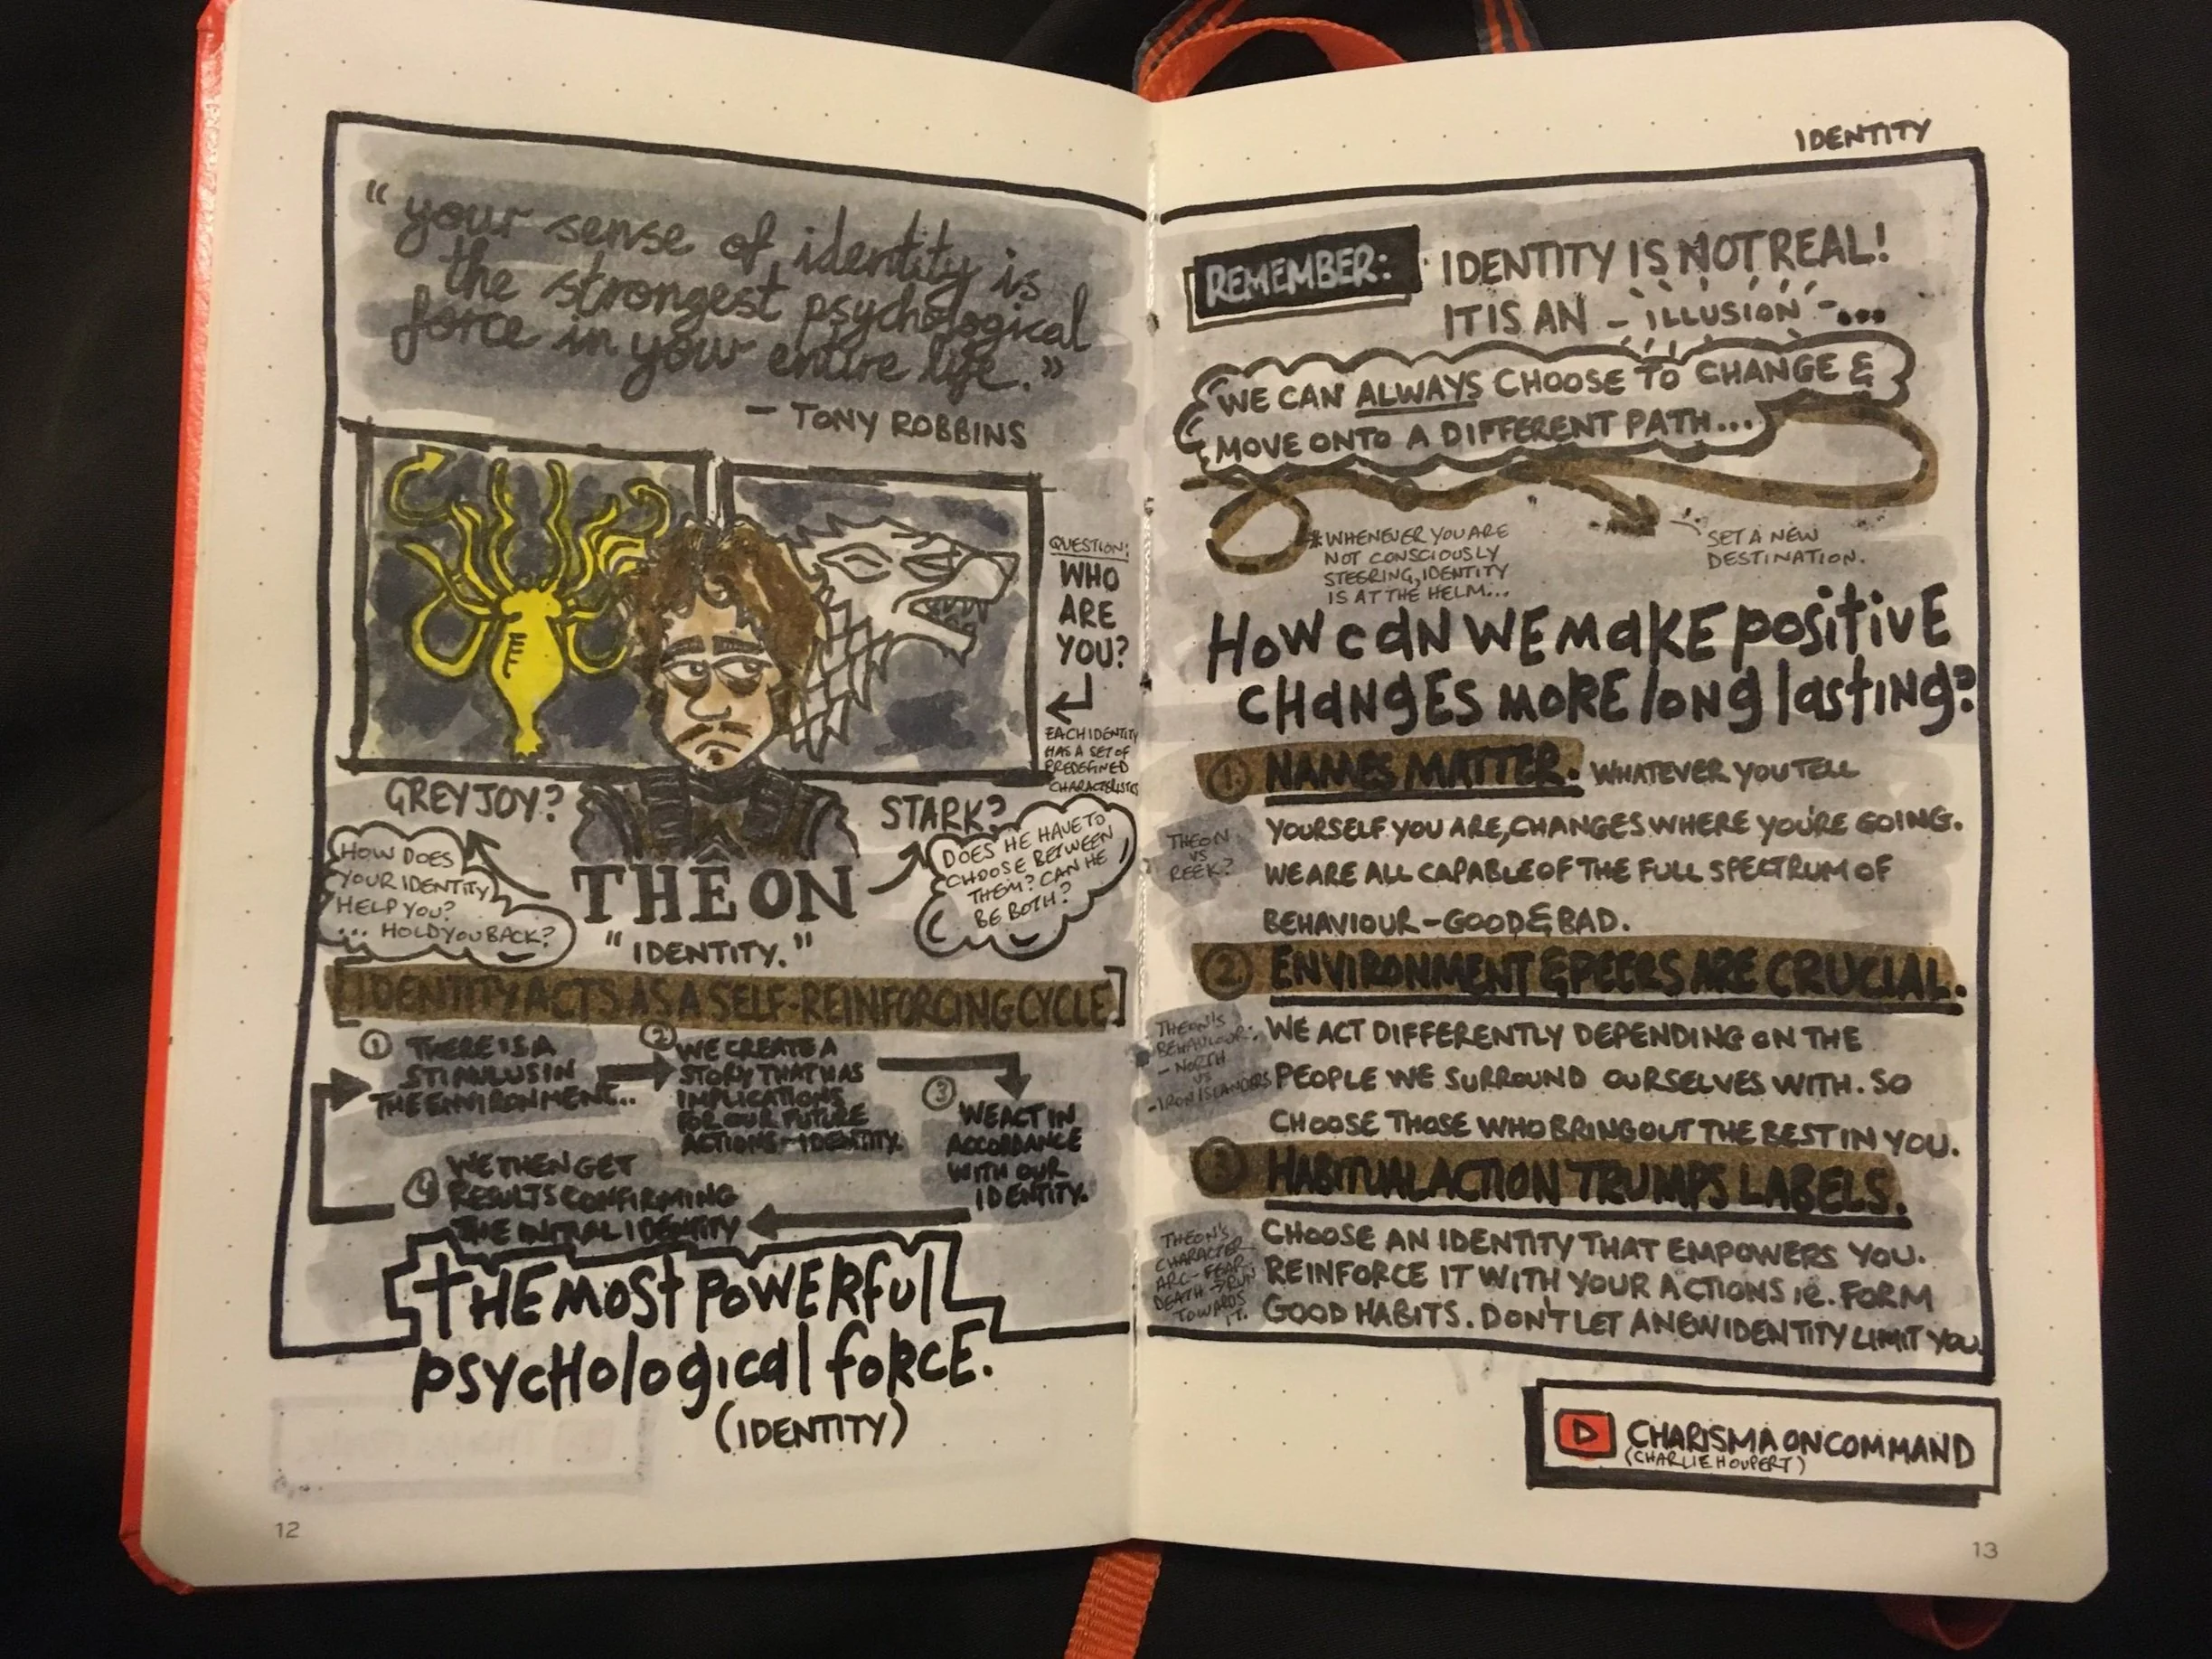 "your sense of identity is
the strongest psychological
force in your entire life."
- TONY ROBBINS
QUESTION:
WHO
ARE
YOU?
EACH IDENTITY
HAS A SET OF
PREDEFINED
CHARACTERISTICS
GREYJOY?
STARK?
HOW DOES
YOUR IDENTITY
HELP YOU?
... HOLD YOU BACK?
DOES HE HAVE TO
CHOOSE BETWEEN
THEM? CAN HE
BE BOTH?
THEON
"IDENTITY."
[IDENTITY ACTS AS A SELF-REINFORCING CYCLE]
1 THERE IS A
STIMULUS IN
THE ENVIRONMENT..
2 WE CREATE A
STORY THAT HAS
IMPLICATIONS
FOR OUR FUTURE
ACTIONS - IDENTITY.
3 WE ACT IN
ACCORDANCE
WITH OUR
IDENTITY.
4 WE THEN GET
RESULTS CONFIRMING
THE INITIAL IDENTITY
THE MOST POWERFUL
psychological force.
(IDENTITY)
12
IDENTITY
REMEMBER: IDENTITY IS NOT REAL!
IT IS AN - ILLUSION - ...
WE CAN ALWAYS CHOOSE TO CHANGE &
MOVE ONTO A DIFFERENT PATH...
*WHENEVER YOU ARE
NOT CONSCIOUSLY
STEERING, IDENTITY
IS AT THE HELM...
SET A NEW
DESTINATION.
HOW CAN WE MAKE positive
CHANGES MORE long lasting?
1. NAMES MATTER. WHATEVER YOU TELL
YOURSELF YOU ARE, CHANGES WHERE YOU'RE GOING.
WE ARE ALL CAPABLE OF THE FULL SPECTRUM OF
BEHAVIOUR - GOOD & BAD.
THEON
VS
REEK?
2. ENVIRONMENT & PEERS ARE CRUCIAL.
WE ACT DIFFERENTLY DEPENDING ON THE
PEOPLE WE SURROUND OURSELVES WITH. SO
CHOOSE THOSE WHO BRING OUT THE BEST IN YOU.
THEON'S
BEHAVIOUR:
- NORTH
VS
- IRON ISLANDERS
3 HABITUAL ACTION TRUMPS LABELS.
CHOOSE AN IDENTITY THAT EMPOWERS YOU.
REINFORCE IT WITH YOUR ACTIONS ie. FORM
GOOD HABITS. DON'T LET A NEW IDENTITY LIMIT YOU.
THEON'S
CHARACTER
ARC - FEAR
DEATH → RUN
TOWARDS
IT.
CHARISMA ON COMMAND
(CHARLIE HOUPERT)
13